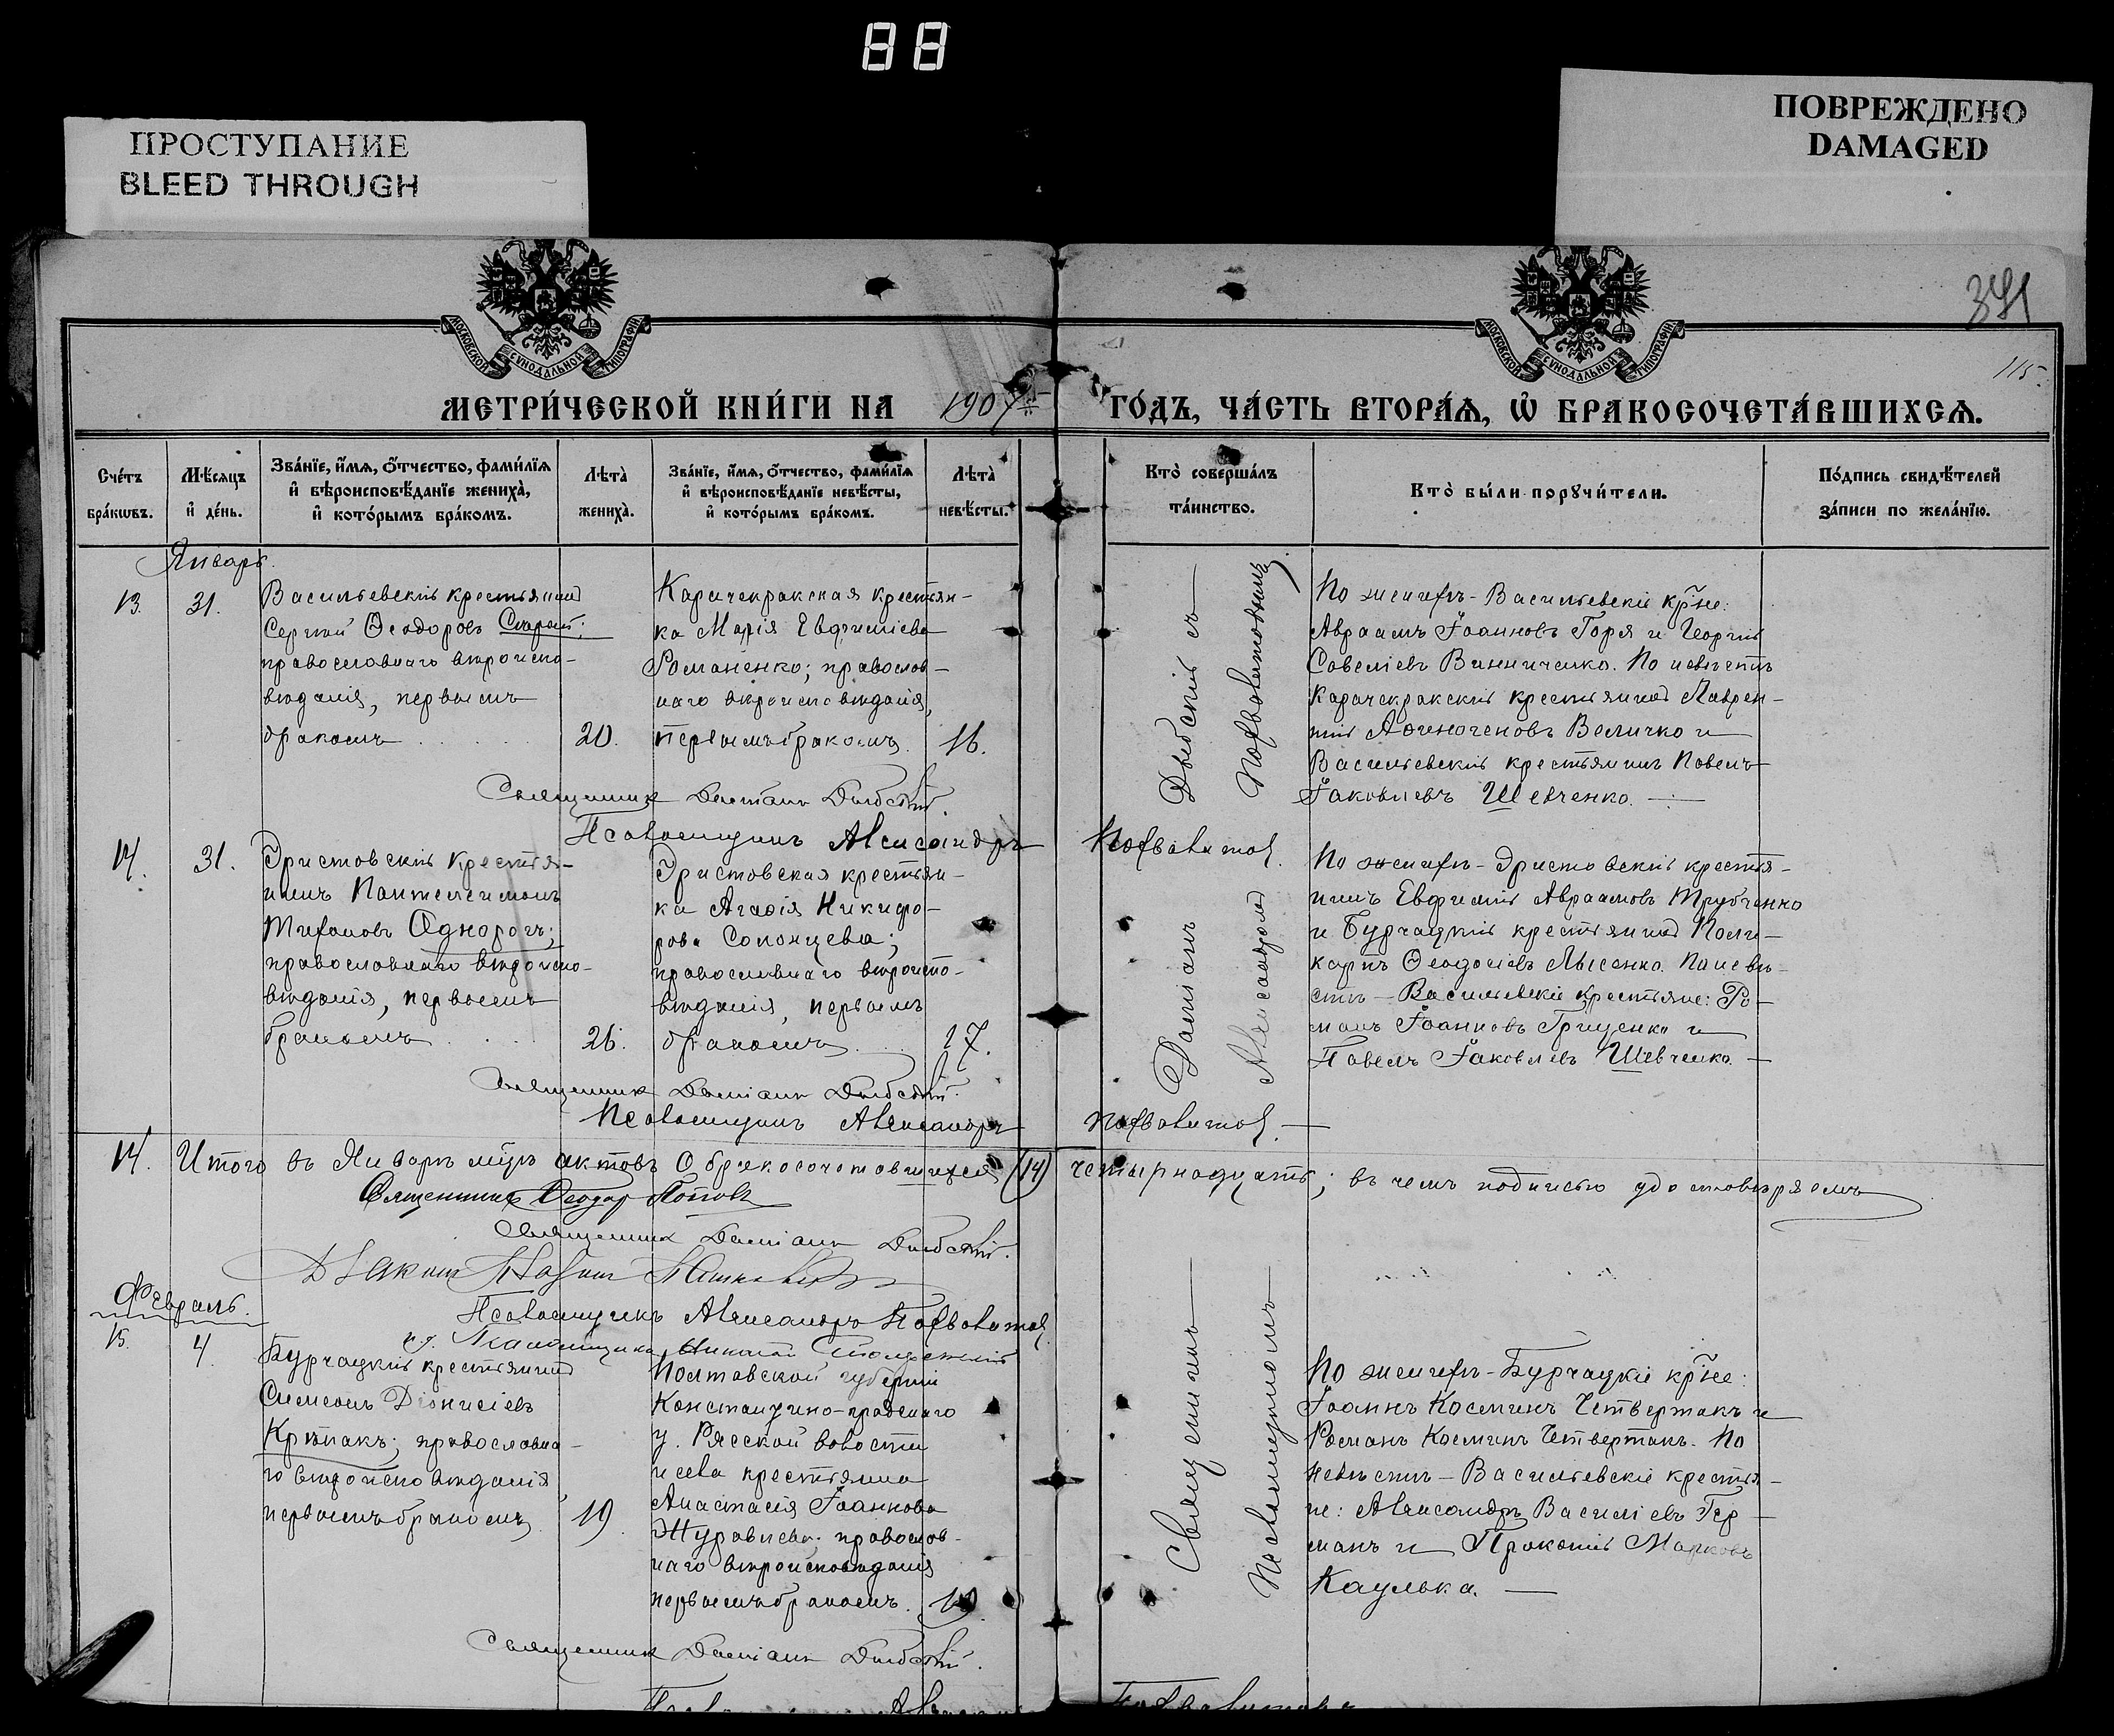 88
ПРОСТУПАНИЕ
BLEED THROUGH
ПОВРЕЖДЕНО
DAMAGED
341
115.
МОСКОВСКОЙ СѴНОДАЛЬНОЙ ТИПОГРАФІИ
МОСКОВСКОЙ СѴНОДАЛЬНОЙ ТИПОГРАФІИ
МЕТРИ́ЧЕСКОЙ КНИ́ГИ НА 1907 ГО́ДЪ, ЧА́СТЬ ВТОРА́Я, Ѡ БРАКОСОЧЕТА́ВШИХСЯ.
Сче́тъ бра́кѡвъ.
Мѣ́сяцъ и҆ де́нь.
Зва́нїе, и҆́мя, ѻ҆́тчество, фами́лїя и҆ вѣроисповѣ́данїе жениха̀, и҆ кото́рымъ бра́комъ.
Лѣта̀ жениха̀.
Зва́нїе, и҆́мя, ѻ҆́тчество, фами́лїя и҆ вѣроисповѣ́данїе невѣ́сты, и҆ кото́рымъ бра́комъ.
Лѣта̀ невѣ́сты.
Кто̀ соверша́лъ та́инство.
Кто̀ бы́ли порꙋчи́тели.
По́дпись свидѣ́телей за́писи по жела́нїю.
Январь.
13. 31.
Васильевскій крестьянинъ
Сергій Ѳеодоровъ
православнаго вѣроиспо-
вѣданія, первымъ
бракомъ . . . . 20.
Карачекракская крестьян-
ка Марія Евфиміева
Романенко; православ-
наго вѣроисповѣданія,
первымъ бракомъ. 16.
По женихѣ - Васильевскіе кр̃не:
Авраамъ Іоанновъ Горя и Георгій
Савеліевъ Винниченко. По невѣстѣ
Карачекракскій крестьянинъ Лаврен-
тій Аѳиногеновъ Величко и
Васильевскій крестьянинъ Павелъ
Іаковлевъ Шевченко. —
Священникъ Даміанъ Дыбскій.
Псаломщикъ Александръ
14. 31.
Эристовскій крестья-
нинъ Пантелеимонъ
Тихоновъ Однорогъ;
православнаго вѣроиспо-
вѣданія, первымъ
бракомъ . . . 26.
Эристовская крестьян-
ка Агаѳія Никифо-
рова Солонцева;
православнаго вѣроиспо-
вѣданія, первымъ
бракомъ . . . 17.
Даміанъ Дыбскій съ
Александромъ
По женихѣ - Эристовскій крестья-
нинъ Евфимій Авраамовъ Трубченко
и Бурчацкій крестьянинъ Поли-
карпъ Ѳеодосіевъ Лысенко. По невѣ-
стѣ - Васильевскіе крестьяне: Ро-
манъ Іоанновъ Гриценко и
Павелъ Іаковлевъ Шевченко. —
Священникъ Даміанъ Дыбскій.
Псаломщикъ Александръ
14. Итого въ Январѣ мцѣ актовъ о бракосочетавшихся (14) четырнадцать; въ чемъ подписью удостовѣряемъ
Священникъ Ѳеодоръ Поповъ
Священникъ Даміанъ Дыбскій.
Діаконъ
Псаломщикъ Александръ
и. д. Псаломщика Николай
Февраль.
15. 4.
Бурчацкій крестьянинъ
Симеонъ Діонисіевъ
Крѣпакъ; православна-
го вѣроисповѣданія,
первымъ бракомъ. 19.
Полтавской губерніи
Константино-градскаго
у. Ряской волости
и села крестьянка
Анастасія Іоаннова
Журавлева; православ-
наго вѣроисповѣданія
первымъ бракомъ. 19.
Священникъ
Псаломщикомъ
По женихѣ - Бурчацкіе кр̃не:
Іоаннъ Косминъ Четвертакъ и
Романъ Косминъ Четвертакъ. По
невѣстѣ - Васильевскіе крестья-
не: Александръ Василіевъ Гер-
манъ и Прокопій Марковъ
Каулька. —
Священникъ Даміанъ Дыбскій.